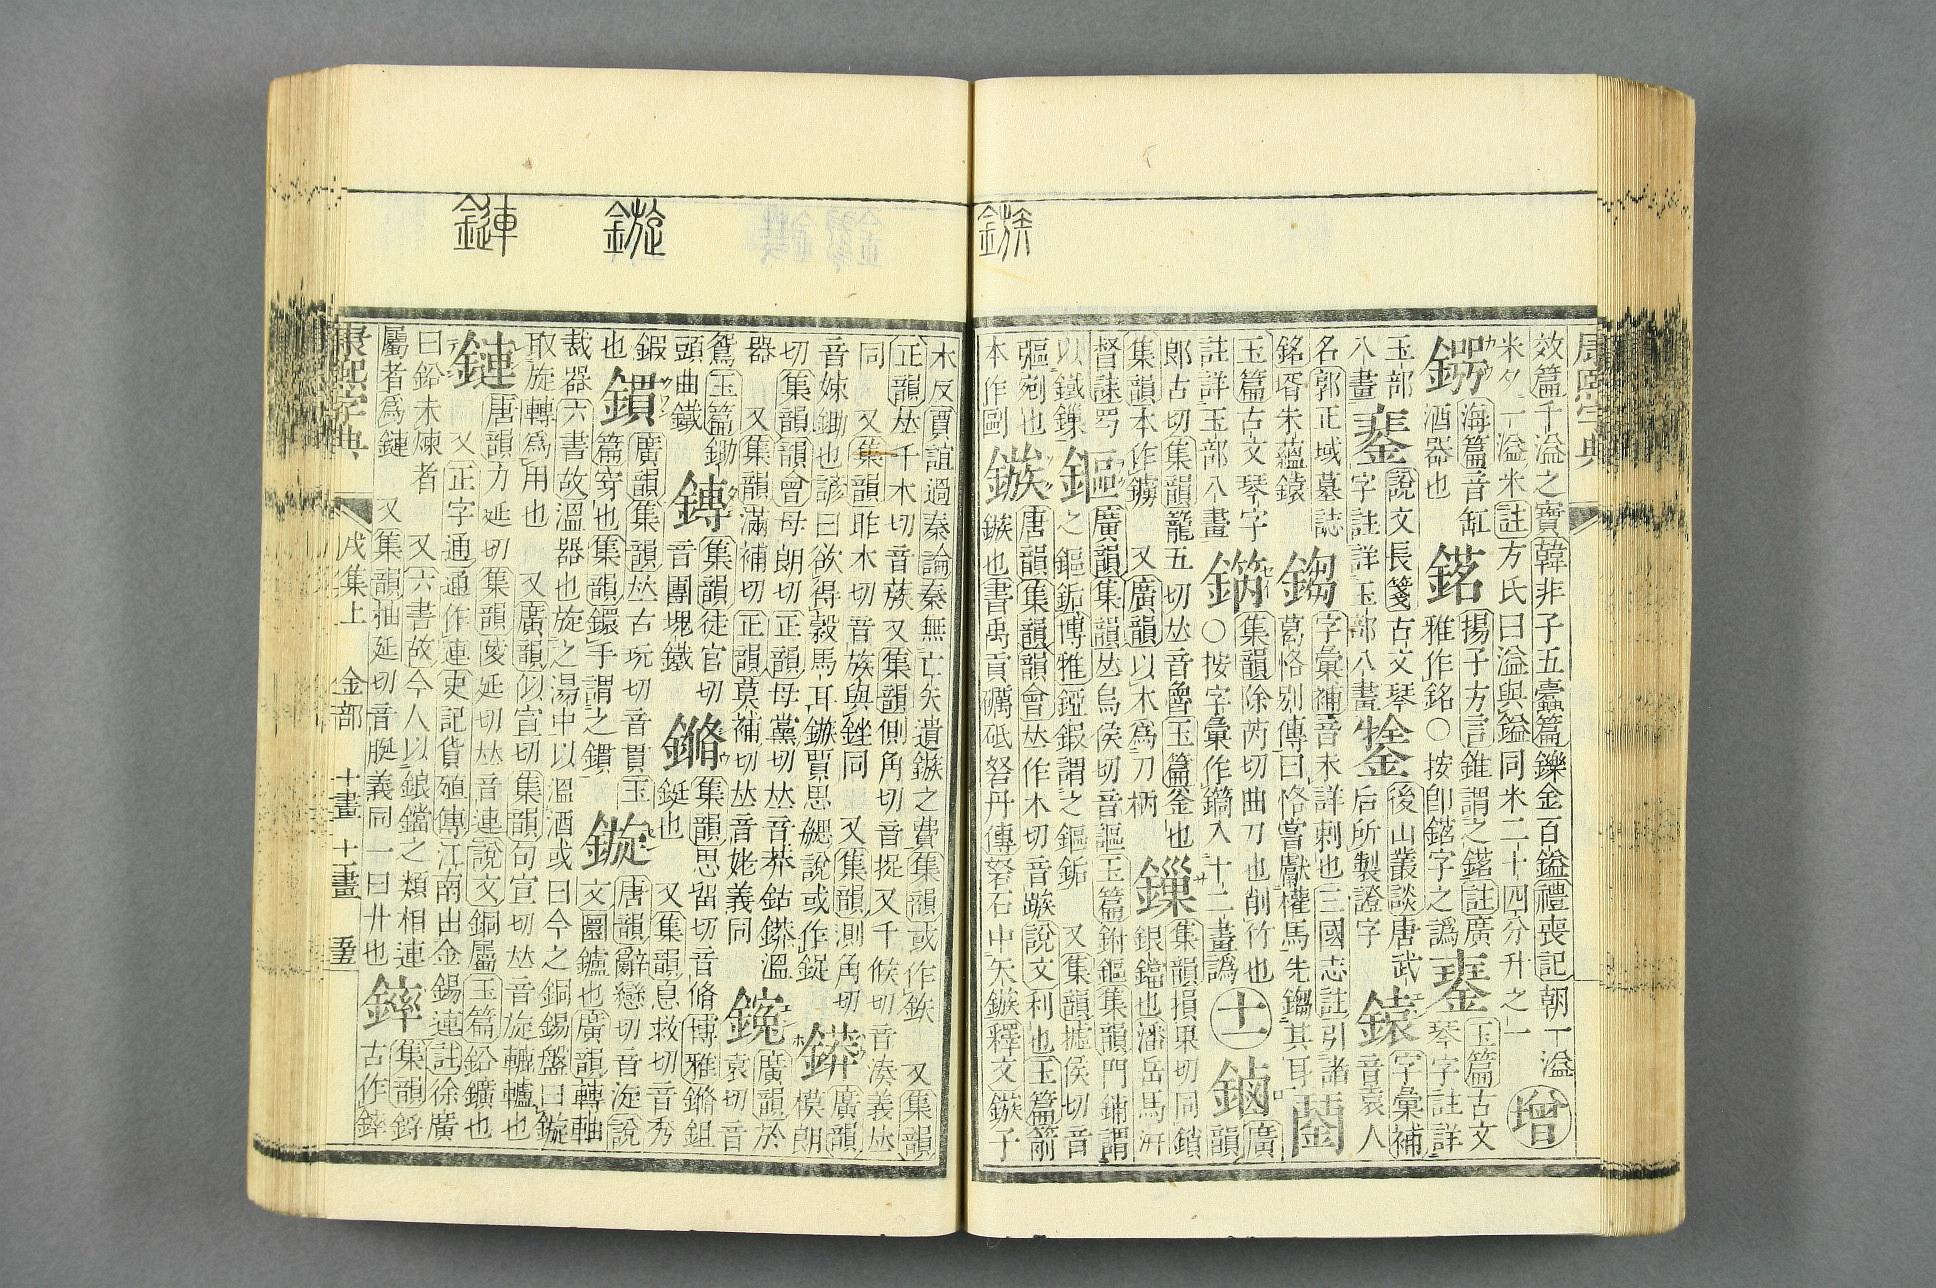 康熙字典
效篇千溢之寶韓非子五蠹篇鑠金百鎰禮喪記朝一溢
米夕一溢米註方氏曰溢與鎰同米二十四分升之一
增
海篇音缸
酒器也
揚子方言錐謂之鍣註廣
雅作銘○按卽鍣字之譌
玉篇古文
琴字註詳
玉部
八畫
說文長箋古文琴
字註詳玉部八畫
後山叢談唐武
后所製證字
鎱
字彙補
音袁人
名郭正域墓誌
銘壻朱蘊鎱
字彙補音未詳刺也三國志註引諸
葛恪別傳曰恪嘗獻權馬先鎉其耳
玉篇古文琴字
註詳玉部八畫
集韻除芮切曲刀也削竹也
○按字彙作鏋入十二畫譌
十一
鏀
廣
韻
郞古切集韻籠五切𠀤音魯玉篇釜也
集韻本作鐪 又廣韻以木爲刀柄
鏁
集韻損果切同鎖
銀鐺也潘岳馬汧
督誄罥
以鐵鏁
鏂
廣韻集韻𠀤烏侯切音謳玉篇鉜鏂集韻門鋪謂
之鏂銗博雅錏鍜謂之鏂銗 又集韻墟侯切音
彄剜也
本作剾
鏃
唐韻集韻韻會𠀤作木切音蹴說文利也玉篇箭
鏃也書禹貢礪砥砮丹傳砮石中矢鏃釋文鏃子
鏃
木反賈誼過秦論秦無亡矢遺鏃之費集韻或作鉃 又集韻
正韻𠀤千木切音蔟又集韻側角切音捉又千候切音湊義𠀤
同 又集韻昨木切音族與銼同 又集韻測角切
音娕鋤也諺曰欲得穀馬耳鏃賈思勰說或作鋜
鏻
廣韻
模朗
切集韻韻會母朗切正韻母黨切𠀤音莽鈷鏻溫
器 又集韻滿補切正韻莫補切𠀤音姥義同
廣韻於
袁切音
鴛玉篇鋤
頭曲鐵
鏄
集韻徒官切
音團塊鐵
集韻思留切音脩博雅鏅鉏
鋌也 又集韻息救切音秀
鍜
也
鏆
廣韻集韻𠀤古玩切音貫玉
篇穿也集韻鐶手謂之鏆
鏇
唐韻辭戀切音淀說
文圜鑪也廣韻轉軸
裁器六書故溫器也旋之湯中以溫酒或曰今之銅錫盤曰鏇
取旋轉爲用也 又廣韻似宣切集韻旬宣切𠀤音旋轆轤也
鏈
唐韻力延切集韻陵延切𠀤音連說文銅屬玉篇鉛鑛也
又正字通通作連史記貨殖傳江南出金錫連註徐廣
曰鉛未煉者 又六書故今人以鋃鐺之類相連
屬者爲鏈 又集韻抽延切音脡義同一曰廾也
集韻鋝
古作
鏇
鏈
康熙字典
戌集上
金部
十畫
十一畫